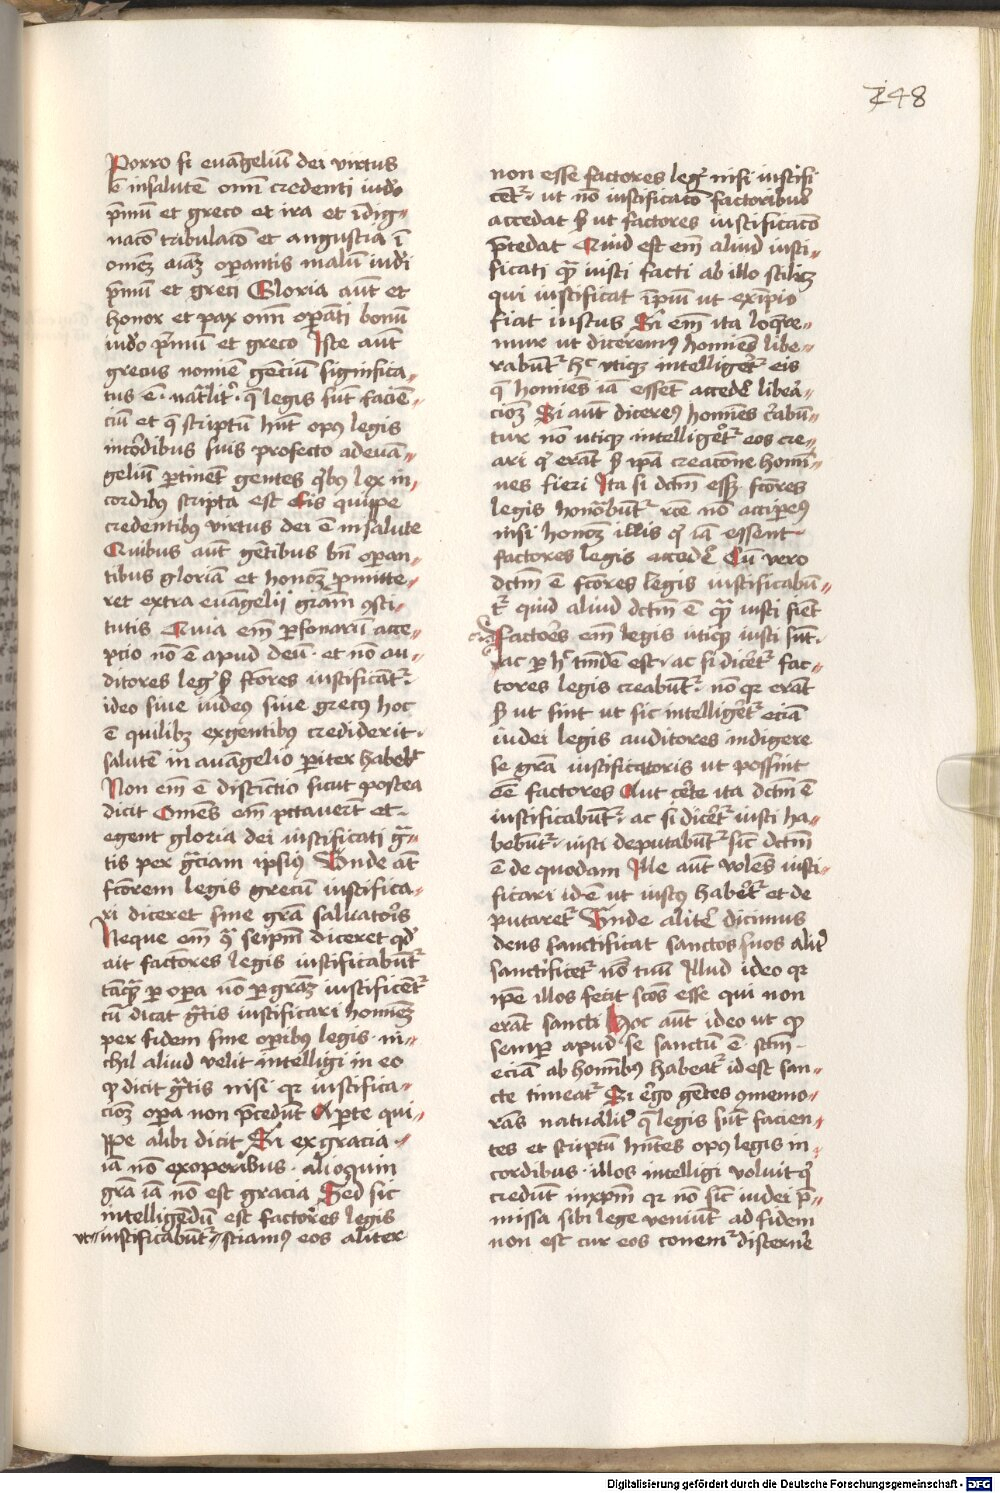 248
Porro si evāgeliū dei virtus
ē in salutē om̄i credenti iudeo
p̄mū et greco et ira et īdig-
nacō tribulacō et angustia ī
omēz aīaz oꝑantis malū iudei
p̄mū et greci Gloria aūt et
honor et pax om̄i oꝑāti bonū
iudeo p̄mū et greco Iste aūt
grecus nomīe gēciū significa-
tus ē nāliter q̄ legis sūt faciē-
ciū et q̄ scriptū hn̄t opꝰ legis
in cordibus suis profecto ad evā-
geliū ꝑtinēt gentes qͥbꝰ lex in
cordibꝰ scripta est Eis quippe
credentibꝰ virtus dei ē in salute
Quibus aūt gētibus bn̄ oꝑan-
tibus gloriā et honorē ꝓmitte-
ret extra evāgelij grām ꝯsti-
tutis Quia em̄ ꝑsonarū acce-
pcio nō ē apud deū et nō au-
ditores legꝭ sꝫ fc̄ores iustificātᷣ
ideo sive iudeꝰ sive grecꝰ hoc
ē quilibꝫ ex gentibus crediderit
salutē in avāgelio ꝑiter habebit
Non em̄ ē distīctio sicut postea
dicit Omēs em̄ pccaverūt et
egent gloria dei iustificati grā-
tis per grāciam ipsiꝰ Unde āt
fc̄orem legis grecū iustifica-
ri diceret sine grā salvatoris
Neque em̄ ꝯͣ seipm̄ diceret qd̓
ait factores legis iustificabūtᷣ
tāqͣ ꝑ oꝑa nō ꝑ grāz iustificētᷣ
cū dicat grātis iustificari homīez
per fidem sine oꝑibꝰ legis ni-
chil aliud velit intelligi in eo
qͦ dicit grātis nisi qꝛ iustifica-
cioēz oꝑa non p̄cedūt Aꝑte qui-
ppe alibi dicit Si ex gracia
iā nō ex operibus alioquin
grā iā nō est gracia Sed sic
intelligēdū est factores legis
iustificabūtᷣ ut sciamꝰ eos aliter
non esse factores legꝭ nisi iustifi
cētᷣ ut nō iustificacō factoribus
accedat sꝫ ut factores iustificacō
p̄cedat Quid est em̄ aliud iusti-
ficati qͣ iusti facti ab illo scilicꝫ
qui iustificat īpiū ut ex īpio
fiat iustus Si em̄ ita loq̄re-
mur ut diceremꝰ homīes libe-
rabūtᷣ hͨ utiqꝫ intelligeretᷣ eis
qͥ homīes iā essēt accedere liberā-
cioēz Si aūt dicereꝰ homīes crabū-
tur nō utiqꝫ intelligeretᷣ eos cre-
ari qͥ erāt sꝫ ipā creacione homī-
nes fieri Ita si dc̄m essꝫ fc̄ores
legis honorabūtᷣ rc̄e nō acciꝑeꝰ
nisi honorē illis qͥ iā essent
factores legis accedere Cū vero
dc̄m ē fc̄ores legis iustificabū-
tᷣ quid aliud dc̄m ē qͣ iusti fiēt
factores em̄ legis utiqꝫ iusti sūt
ac ꝑ hͨ tm̄dē est ac si diceretᷣ fac-
tores legis creabūtᷣ nō qꝛ erāt
sꝫ ut sint ut sic intelligeretᷣ eciā
iudei legis auditores indigere
se grā iustificatoris ut possint
eē factores Aut certe ita dc̄m ē
iustificabūtᷣ ac si diceretᷣ iusti ha-
bebūtᷣ iusti deputabūtᷣ sic̄ dc̄m
ē de quodam Ille aūt volēs iusti-
ficari id ē ut iustꝰ haberetᷣ et de
putaretᷣ Unde aliter dicimus
deus sanctificat sanctos suos aliter
sanctificetᷣ nō tuū Illud ideo qꝛ
ipē illos fecit scōs esse qui non
erāt sancti Hoc aūt ideo ut qͦ
semꝑ apud se sanctū ē stm̄
eciā ab homībus habeatᷣ id est san-
cte timeatᷣ Si ergo gētes ꝯmemo-
rās naturaliter q̄ legis sūt facien-
tes et scriptū hn̄tes opꝰ legis in
cordibus illos intelligi voluit qͥ
credūt in xpm̄ qꝛ nō sic̄ iudei p̄-
missa sibi lege veniūt ad fidem
non est cur eos conemᷣ discernere
Digitalisierung gefördert durch die Deutsche Forschungsgemeinschaft - DFG